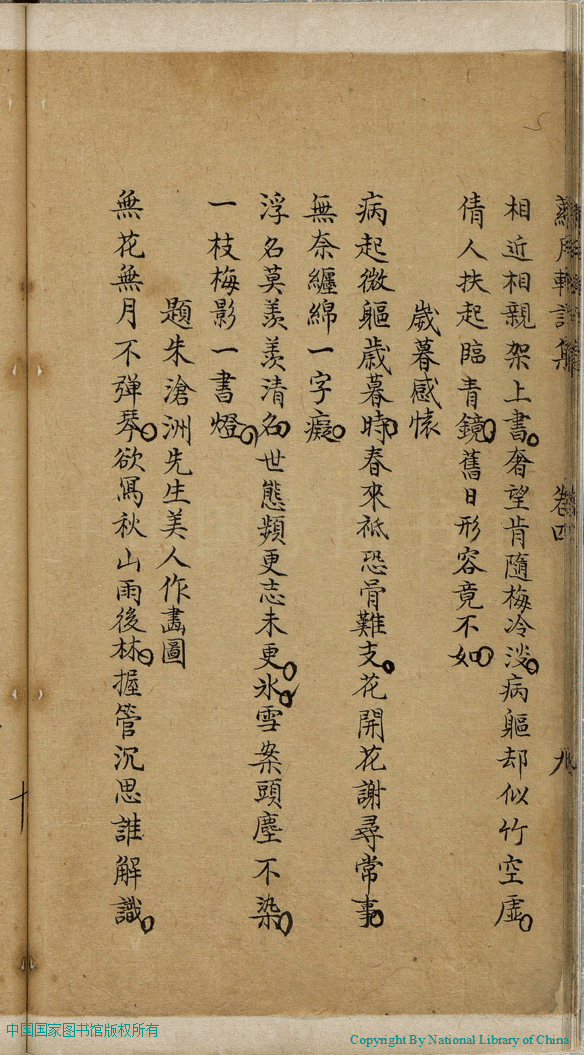 月軒詩集 卷四 九
相近相親架上書。奢望肯隨梅冷淡。病軀却似竹空虛。
倩人扶起臨青鏡。舊日形容竟不如。
歲暮感懷
病起微軀歲暮時。春來祗恐骨難支。花開花謝尋常事。
無奈纏綿一字癡。
浮名莫羨羨清名。世態頻更志未更。氷。雪案頭塵不染。
一枝梅影一書燈。
題朱滄洲先生美人作畫圖
無花無月不彈琴。欲寫秋山雨後林。握管沉思誰解識。
十
中国国家图书馆版权所有
Copyright By National Library of China